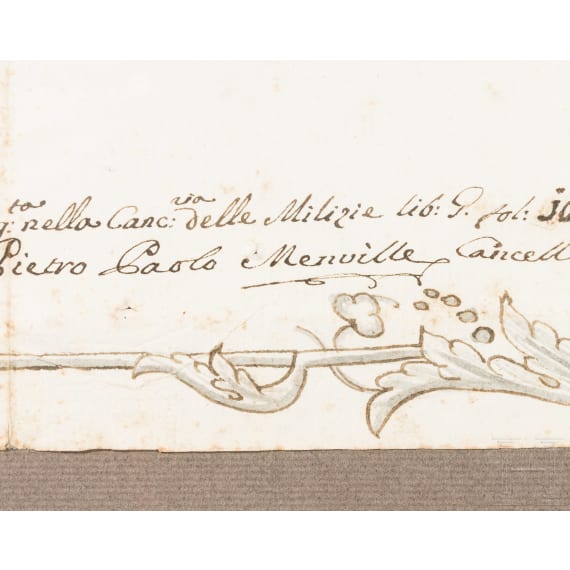 q:ta nella Canc:ria delle Milizie lib: G. fol:
Pietro Paolo Menville Cancell